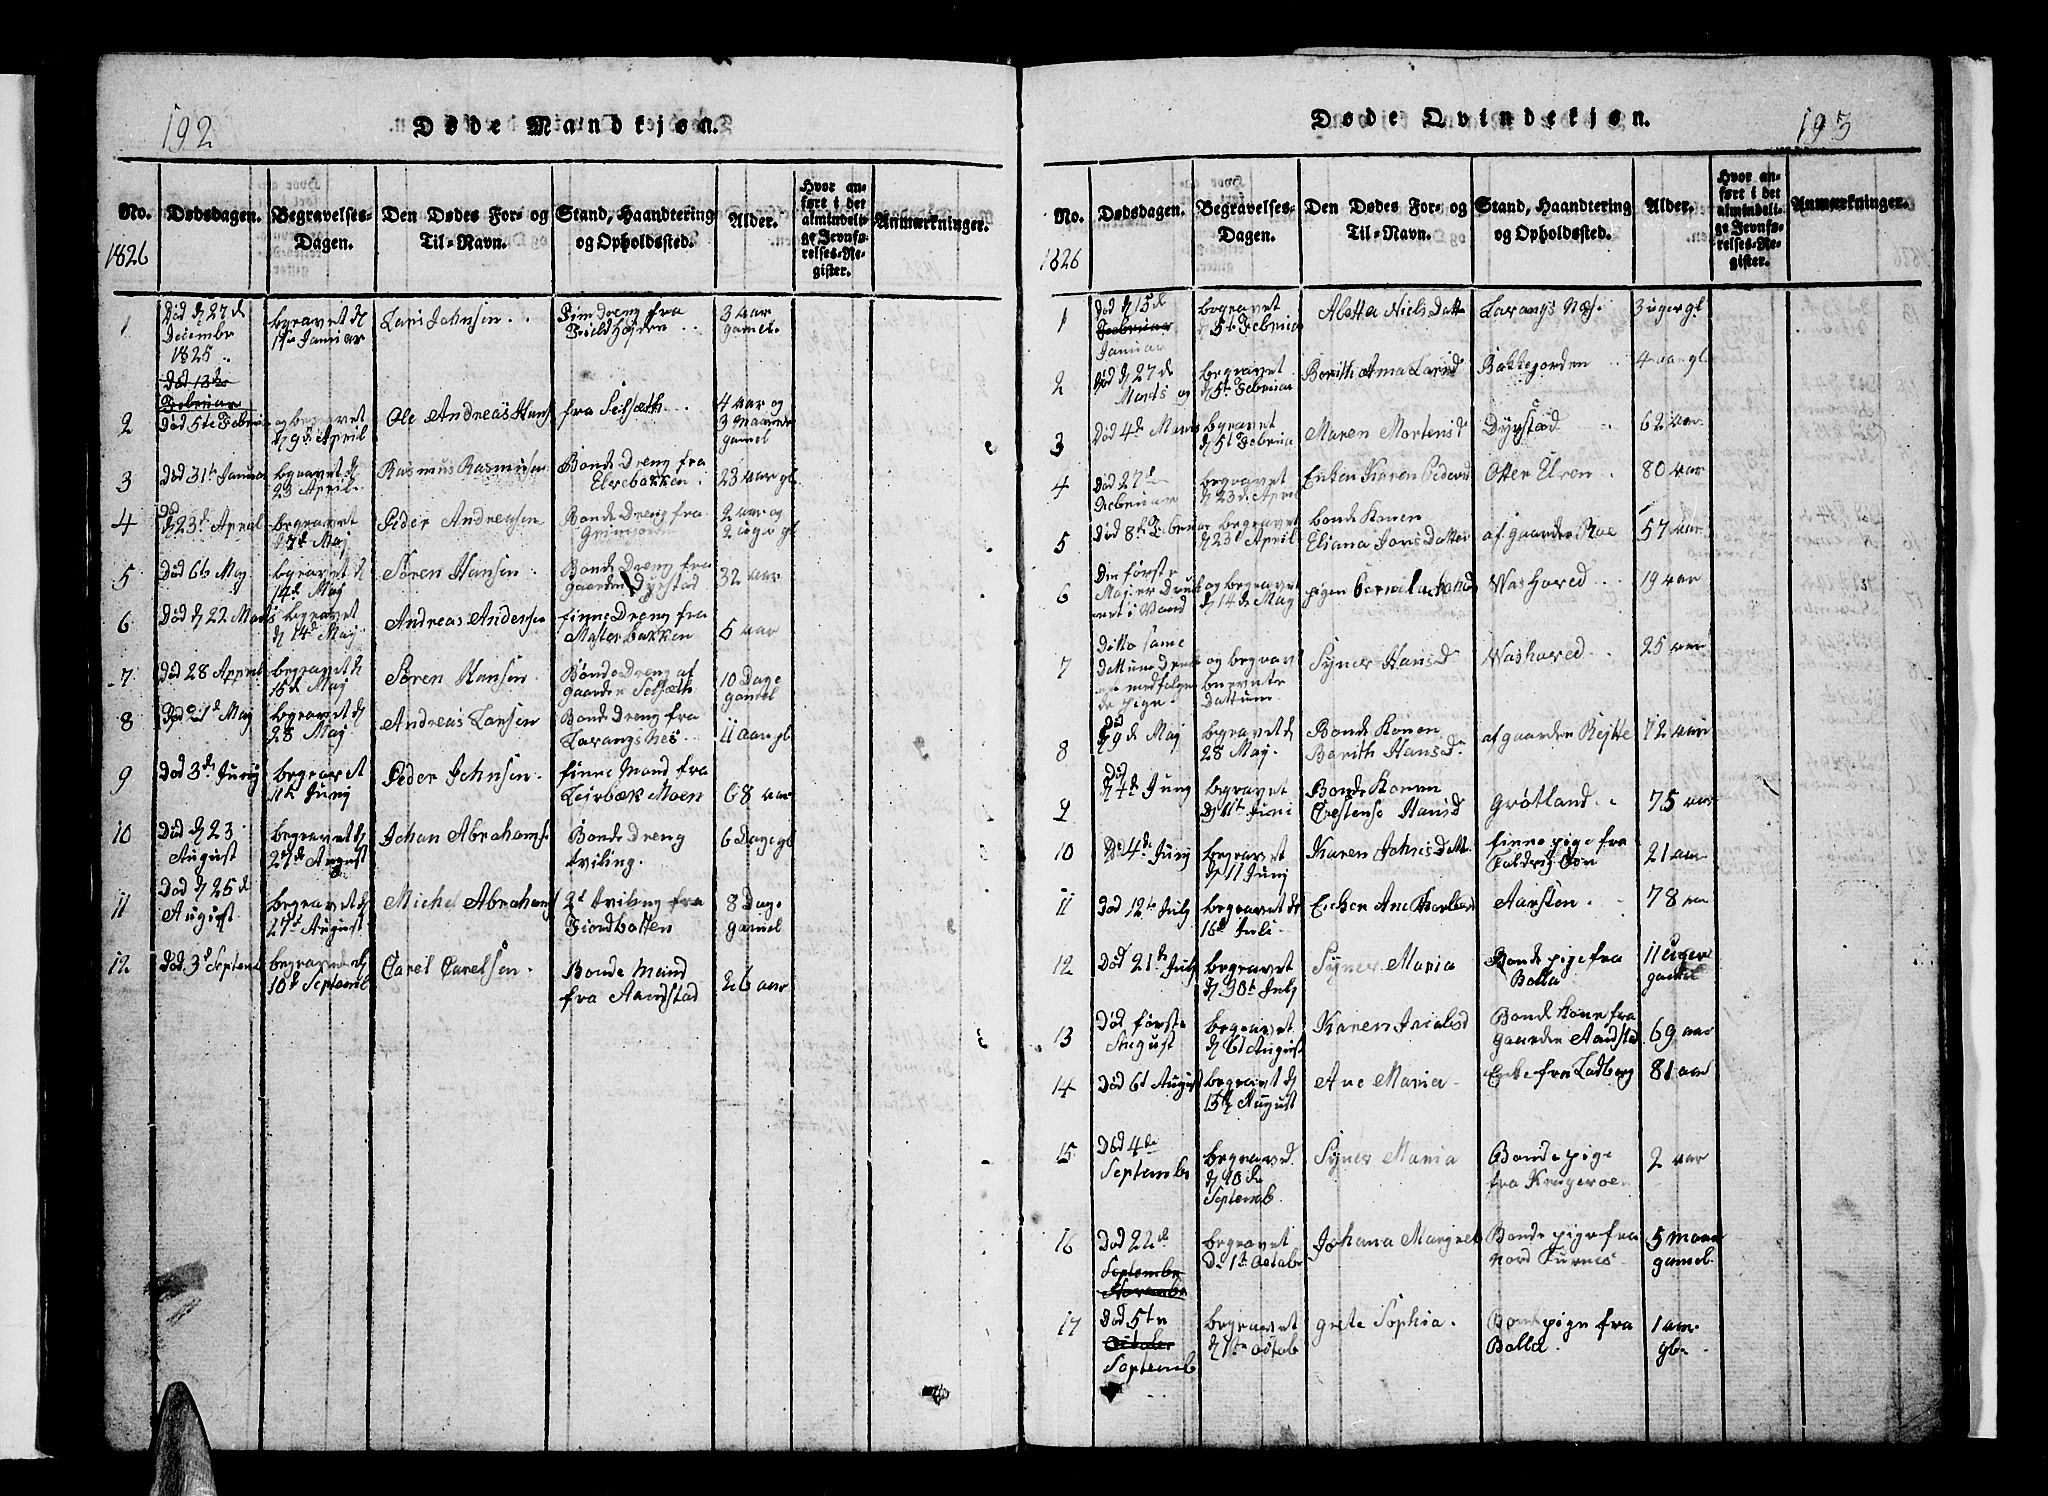 192
Døde Mandkjøn.
No.
1826
Dødsdagen.
Begravelses-
Dagen.
Den Dødes For- og
Til-Navn.
Stand, Haandtering
og Opholdssted.
Alder.
Hvor an-
ført i det
almindeli-
ge Jevnfø-
relses-Re-
gister.
Anmærkninger.
1
Död d 27 d
December
1825
begravet d
1te Januar
Johnsen
Dreng fra
3 aar
gamel
2
Död 13de
Februar
Död 5te Februar
og begravet
d 9d April
Ole Andreas Hans
fra Selsæth
4 aar og
3 maaneder
gamel
3
Död 31te Januar
begravet d
23 April
Rasmus Rasmusen
Bonde Dreng fra
Elvebakken
23 aar gl
4
Död
d 23d April
begravet
d 7d Maj
Peder Andreasen
Bonde Dreng fra
2 aar og
2 uge gl
5
Död 6te Maj
begravet d
14d Maj
Sören Hansen
Bonde Dreng fra
Gaarden Dyrstad
32 aar
6
Död d 22 Marts
begravet
d 14d Maj
Andreas Andersen
finne Dreng fra
bakken
5 aar
7
Död 28 Appril
begravet d
15d Maj
Sören Hansen
Bonde Dreng af
gaarden Selsæth
10 Dage
gamel
8
Död 21d Maj
begravet d
28 Maj
Andreas Larsen
Bonde Dreng fra
Lavangsnes
11 aar gl
9
Död 3de Junij
begravet
11te Junij
Peder Johnsen
finne Mand fra
Leirbæk Moen
68 aar
10
Död d 23
August
begravet d
27de August
Johan Abrahams
Bonde Dreng
tviling.
6 Dage gl
11
Död d 25de
August
begravet d
27d August
Michel Abrahams
2d tviling fra
Fiordbotten
8 Dage
gamel
12
Död 3d Septemb
begravede d
10d Septemb
Carel Carelsen
Bonde Mand
fra Aandstad
26 aar
Døde Qvindekjøn.
193
No.
1826
Dødsdagen.
Begravelses-
Dagen.
Den Dødes For- og
Til-Navn.
Stand, Haandtering
og Opholdssted.
Alder.
Hvor an-
ført i det
almindeli-
ge Jevnfø-
relses-Re-
gister.
Anmærkninger.
1
Död d 15d
Februar
Januar
begravet
5te Februar
Aletta Niels Datt
Lavangs Næs
3 uger gl
2
Död d 27de
Marts og
begravet
d 5te Februar
Berith Anna Larsd
Bakkejorden
4 aar gl
3
Död 4de Marts
begravet
d 5t Februa
Maren Mortensd
Dyrstad
62 aar
4
Död 27d
Februar
begravet
d 23d April
Enken Karen Pedersd
Otter Elven
80 aar
5
Död 8de Februar
begravet
d 23d April
bonde Konen
Eliana Jonsdatter
af gaarden Roe
57 aar
6
Den förste
Maj er Druk
net i Vand
og begravet
d 14de Maj
pigen
Washaved
19 aar
7
Ditto same
Dattum Druk
med fölgen
de pige
og begrav
benevnte
Dattum
Synev Hansd
Washaved
25 aar
8
Död
d 9de Maj
begravet d
28 Maj.
Bonde Konen
Berith Hansd
af gaarden Rejtte
72 aar
9
Död
d 4de Junij
begravet
d 11te Juni
Bonde Konen
Crestense Hansd
Grötland
75 aar
10
De 4de Junij
begravet
d 11 Junij
Karen Johnsdatt
finne pige fra
21 aar
11
Död 12te July
begravet de
16d Juli
Enken Ane
Aarsten
78 aar
12
Död 21te July
begravet
d 30te July
Synev Maria
Bonde pige fra
Bolla
11 uger
gamel
13
Död förste
August
begravet
d 6t August
Karen
Bonde kone fra
gaarden Aandstad
69 aar
14
Död 6t August
begravet d
13te August
Ane Maria
Enke fra Ladberg
81 aar
15
Död 4de
Septemb
begraved
d 10de
Septemb
Synev Maria
Bonde pige
fra Krageroe
2 aar
16
Död 22de
Septembr
Novembr
begravet
d 1te Octob
Johana Margret
Bonde pige fra
Nord
5 maan
gamel
17
Död 5te
October
Septemb
begravet
d 1te Octob
grete Sophia
pige fra
Bolla
1 aar
gl